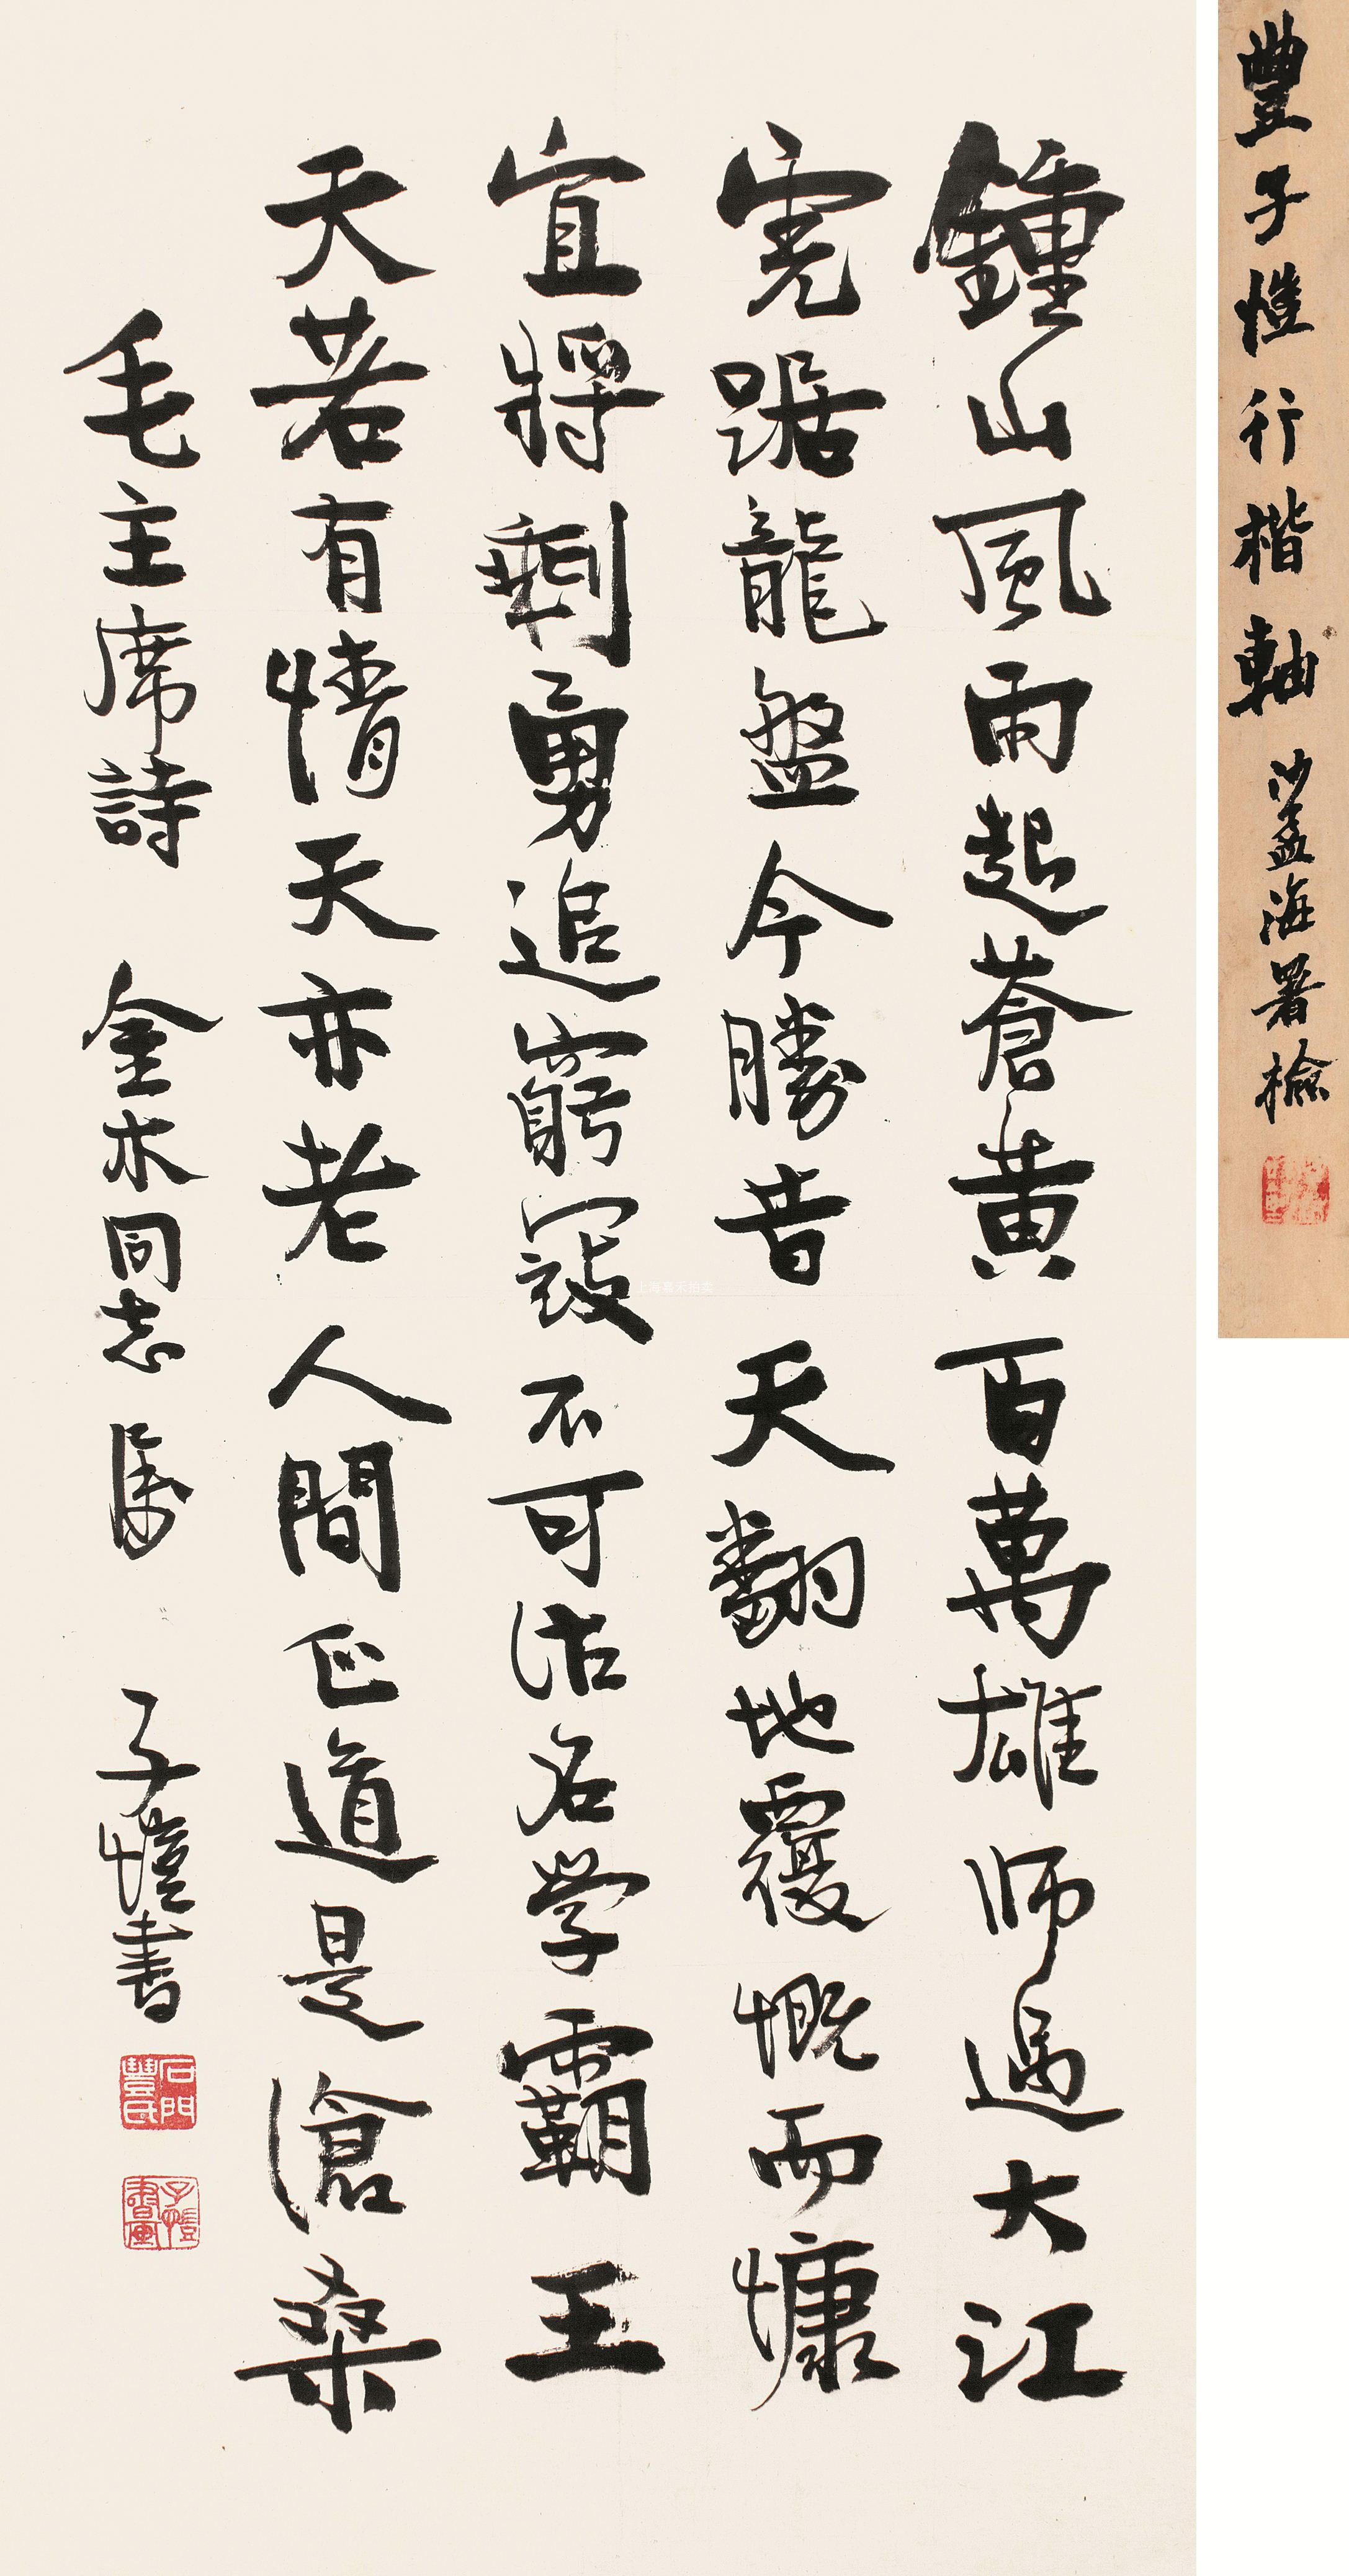 鍾山風雨起蒼黃百萬雄师過大江
虎踞龍盤今勝昔天翻地覆慨而慷
宜將剩勇追窮寇不可沽名学霸王
天若有情天亦老人間正道是滄桑
毛主席詩 金木同志属 子愷書
石門豐氏
子愷書畫
豐子愷行楷軸 沙孟海署檢
上海嘉禾拍卖